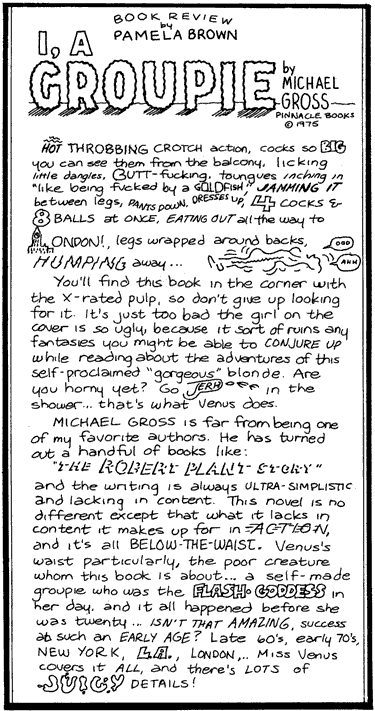 BOOK REVIEW
by
PAMELA BROWN
I, A
GROUPIE
by
MICHAEL
GROSS
PINNACLE BOOKS
© 1975
HOT THROBBING CROTCH action, cocks so BIG
you can see them from the balcony, licking
little dangles, BUTT-fucking, toungues inching in
"like being fucked by a GOLDFISH" JAMMING IT
between legs, PANTS DOWN, DRESSES UP, 4 COCKS &
8 BALLS at ONCE, EATING OUT all the way to
LONDON!, legs wrapped around backs,
HUMPING away...
OOO
AHH
You'll find this book in the corner with
the X-rated pulp, so don't give up looking
for it. It's just too bad the girl on the
cover is so ugly, because it sort of ruins any
fantasies you might be able to CONJURE UP
while reading about the adventures of this
self-proclaimed "gorgeous" blonde. Are
you horny yet? Go JERK OFF in the
shower... that's what Venus does.
MICHAEL GROSS is far from being one
of my favorite authors. He has turned
out a handful of books like:
"THE ROBERT PLANT STORY"
and the writing is always ULTRA-SIMPLISTIC
and lacking in content. This novel is no
different except that what it lacks in
content it makes up for in ACTION,
and it's all BELOW-THE-WAIST. Venus's
waist particularly, the poor creature
whom this book is about... a self-made
groupie who was the FLASH-GODDESS in
her day. and it all happened before she
was twenty... ISN'T THAT AMAZING, success
at such an EARLY AGE? Late 60's, early 70's,
NEW YORK, L.A., LONDON,.. Miss Venus
covers it ALL, and there's LOTS of
JUICY DETAILS!